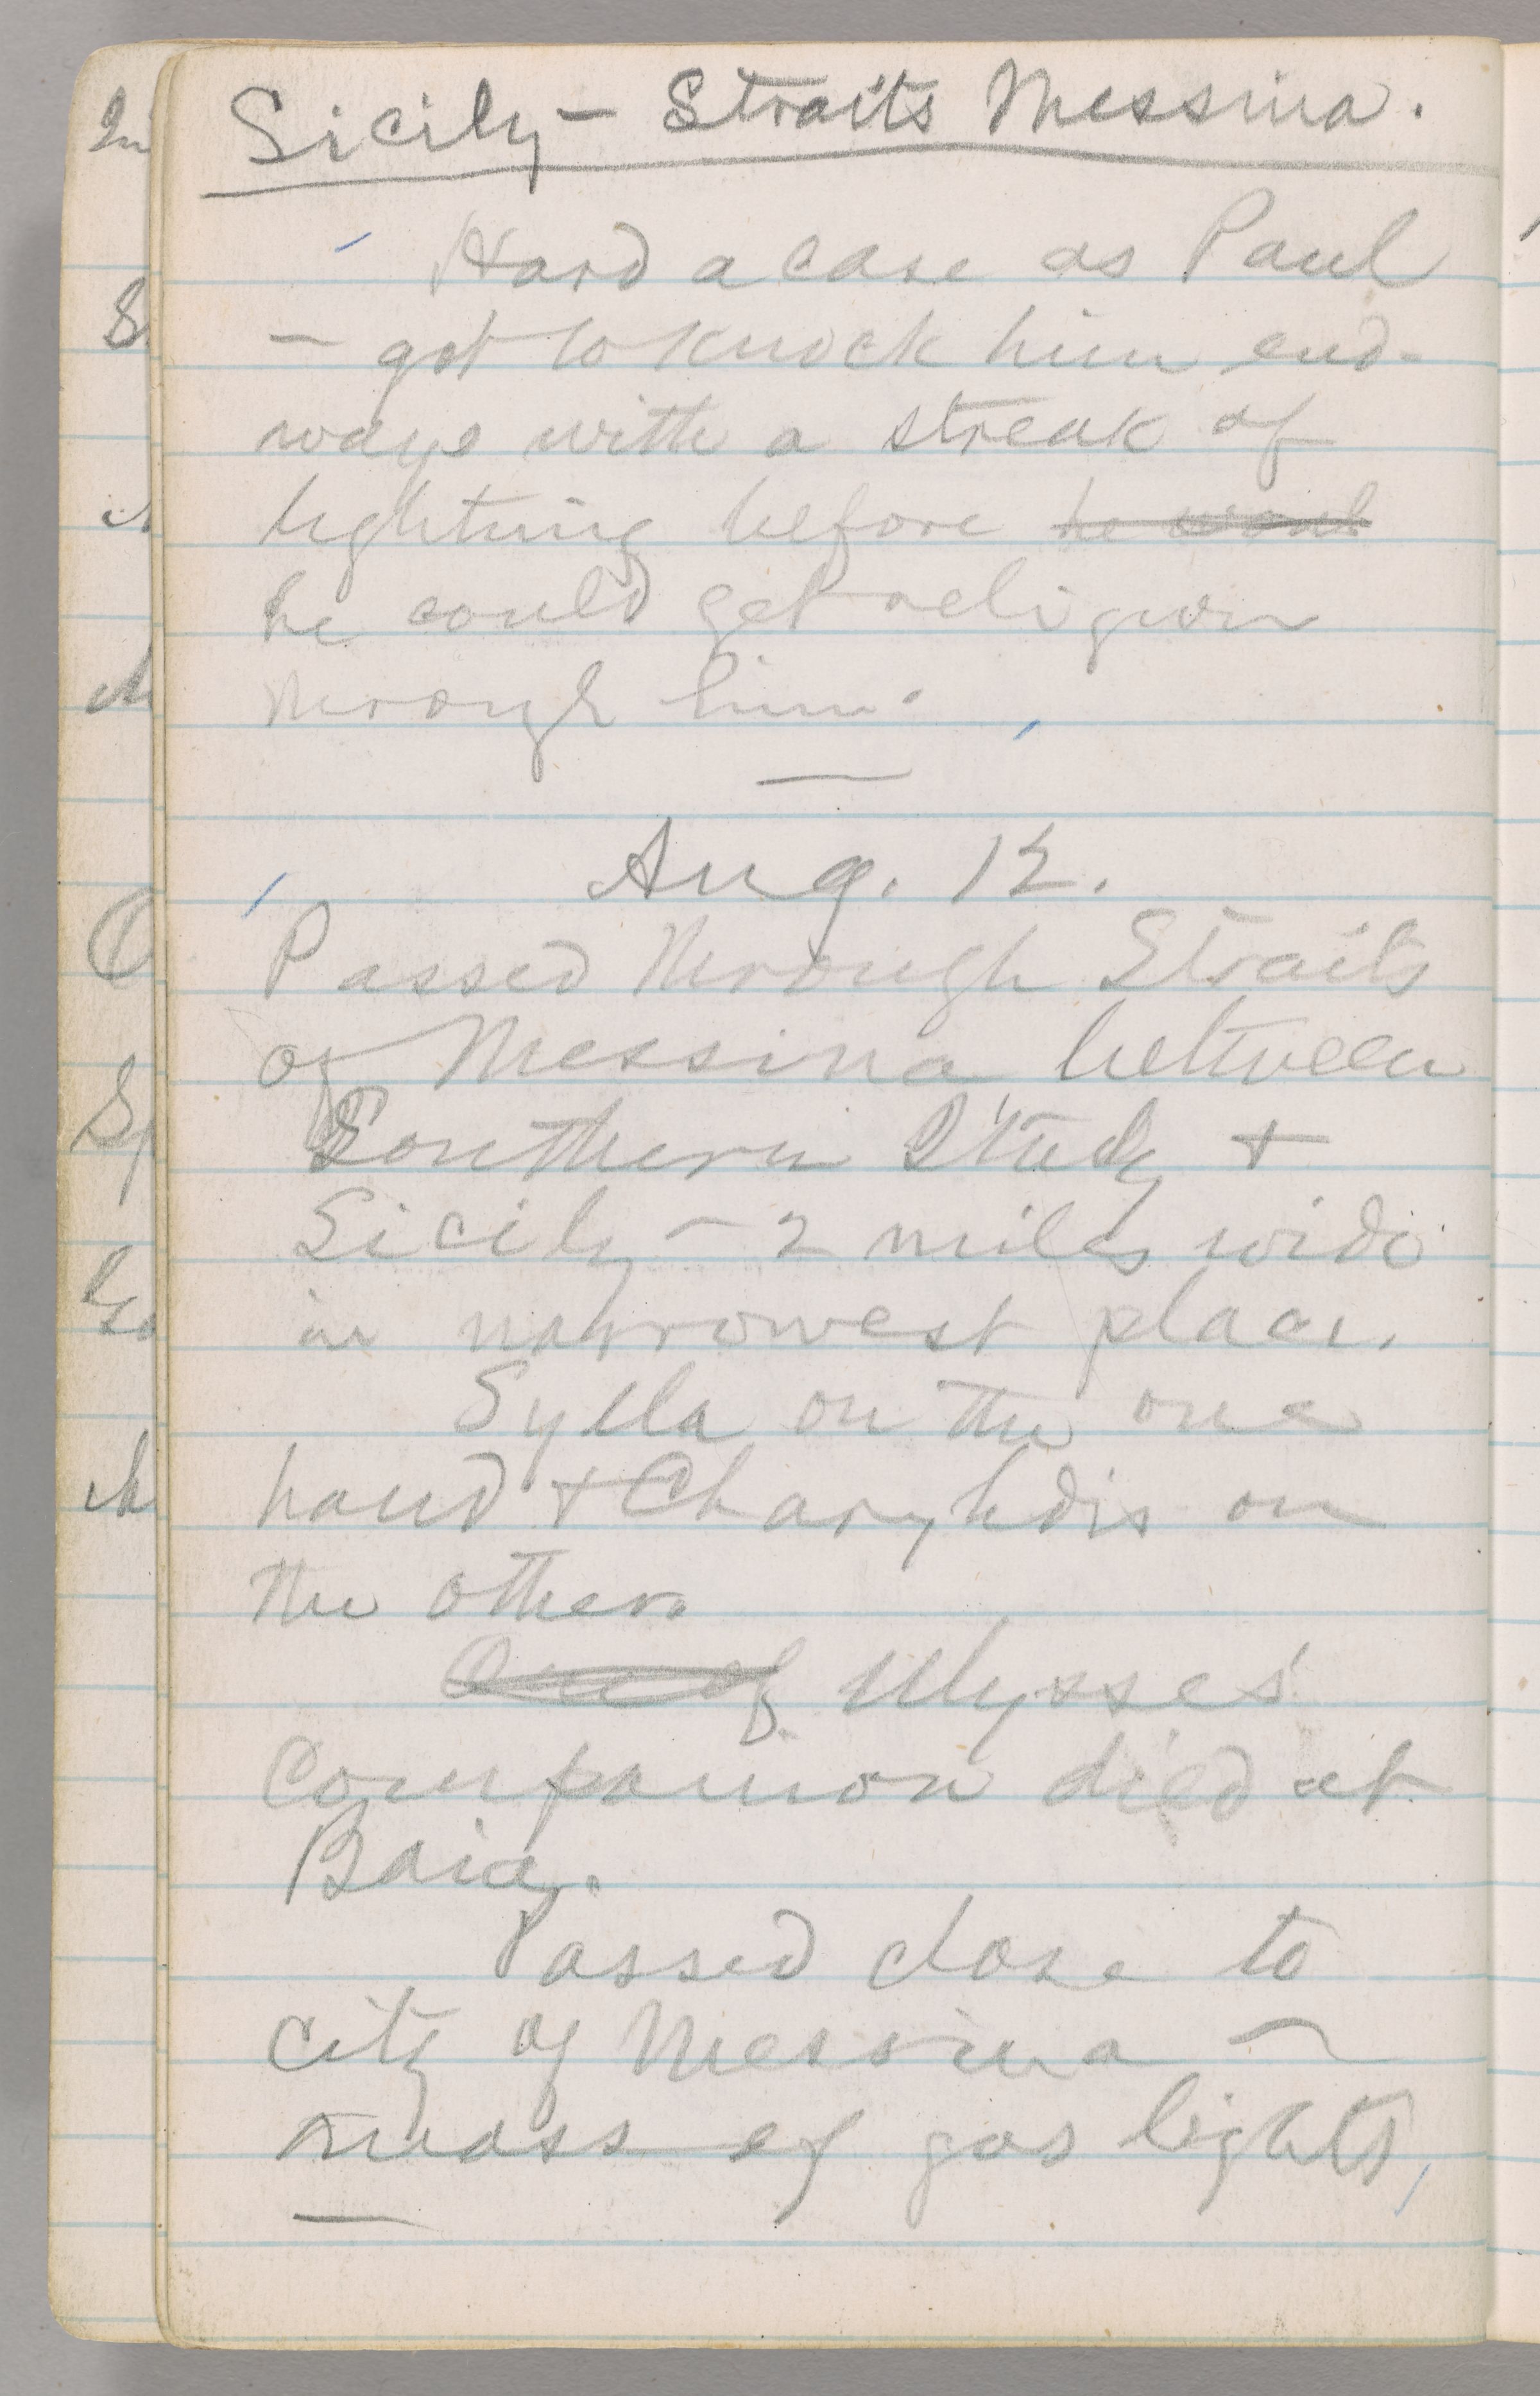 Sicily – Straits Messina.
Hard a case as Paul
– got to knock him end-
ways with a streak of
lightning before he woul
he could get religion
through him.
—
Aug. 12.
Passed through Straits
of Messina between
Southern Italy +
Sicily – 2 miles wide
in narrowest place.
Sylla on the one
hand + Charybdis on
the other.
One of Ulysses'
companion died at
Baiæ.
Passed close to
city of Messina –
mass of gas lights,
—